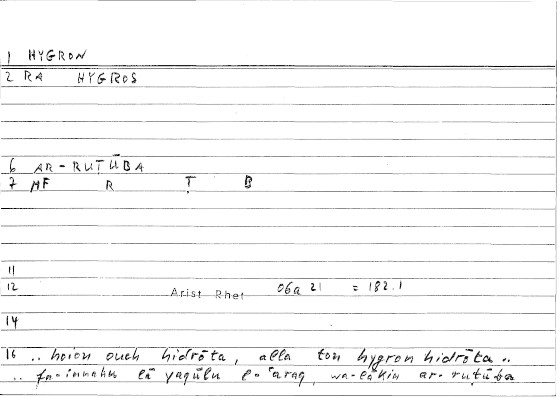 1 HYGRON
2 RA HYGROS
6 AR-RUṬŪBA
7 MF R Ṭ B
11
12 Arist Rhet 06a 21 = 182.1
14
16 .. hoion ouch hidrōta, alla ton hygron hidrōta ..
.. fa-innahu lā yaqūlu l-ʿaraq, wa-lākin ar-ruṭūba